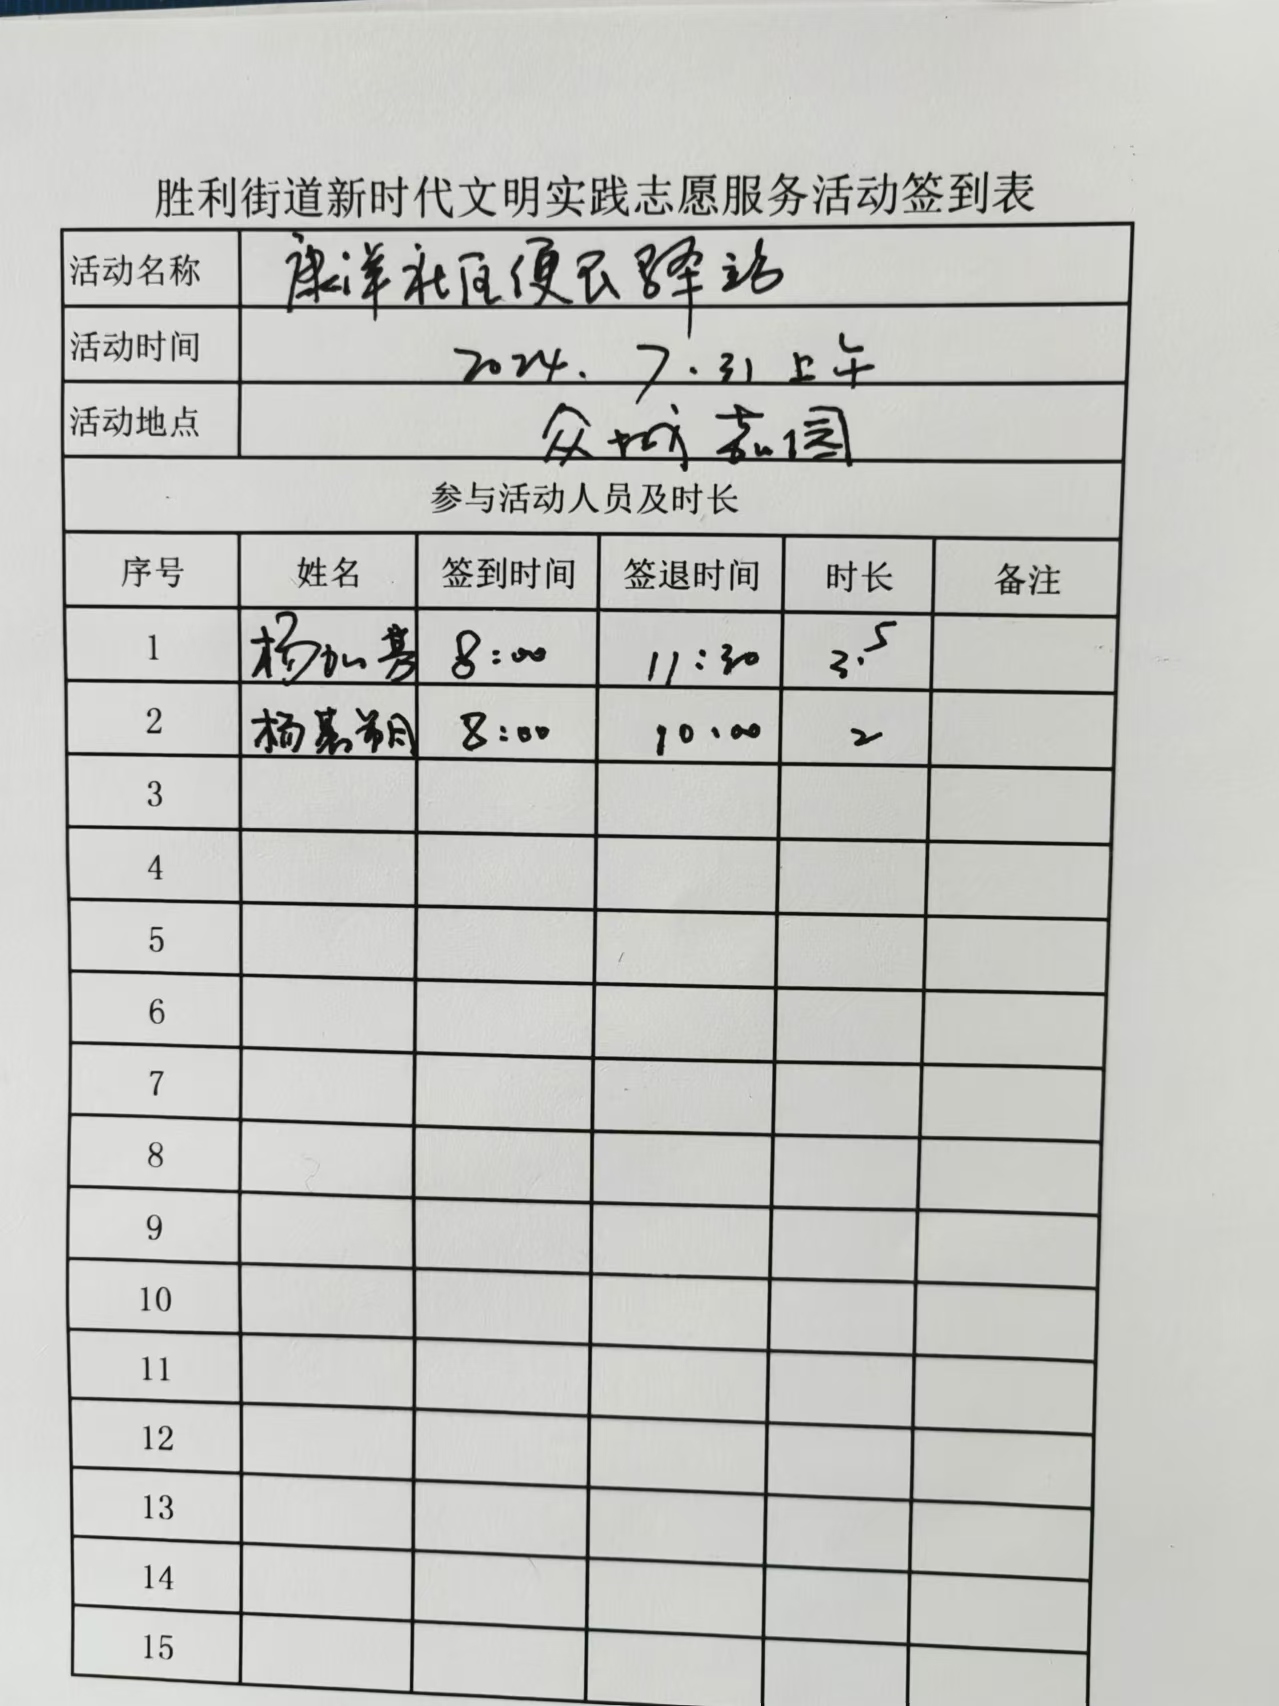 胜利街道新时代文明实践志愿服务活动签到表
活动名称 康洋社区便民驿站
活动时间 2024.7.31上午
活动地点 众城嘉园
参与活动人员及时长
序号 姓名 签到时间 签退时间 时长 备注
1 杨加基 8:00 11:30 3.5
2 杨 8:00 10:00 2
3
4
5
6
7
8
9
10
11
12
13
14
15